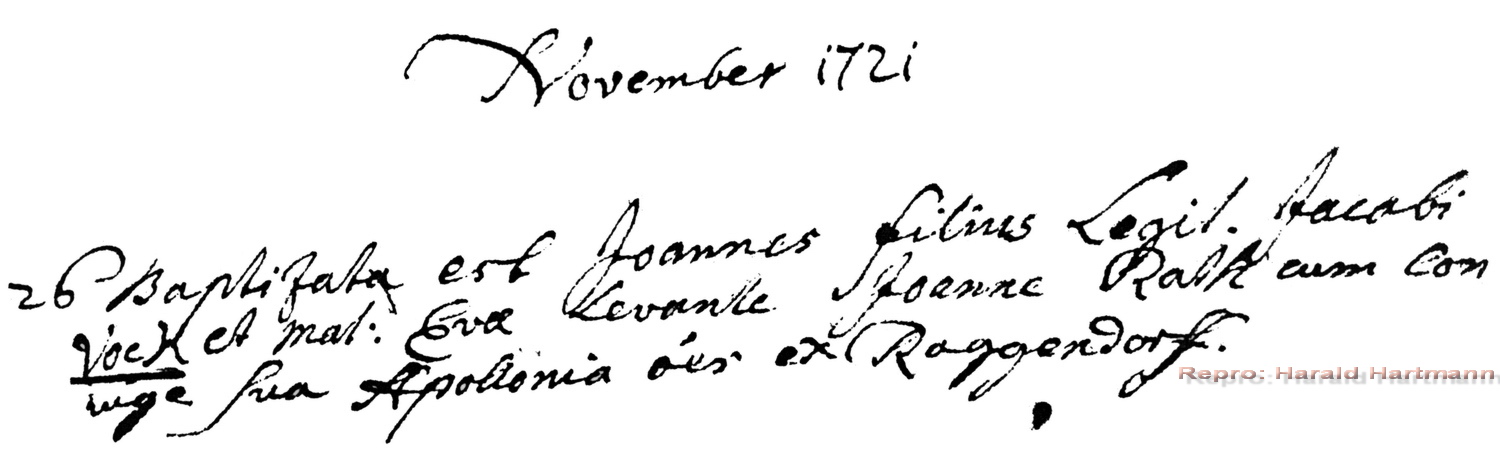 November 1721
26 Baptizata est Joannes filius Legit. Jacobi
Vock et mat: Evæ Levante Joanne Rath cum con
iuge sua Apollonia ões ex Raggendorff.
Repro: Harald Hartmann